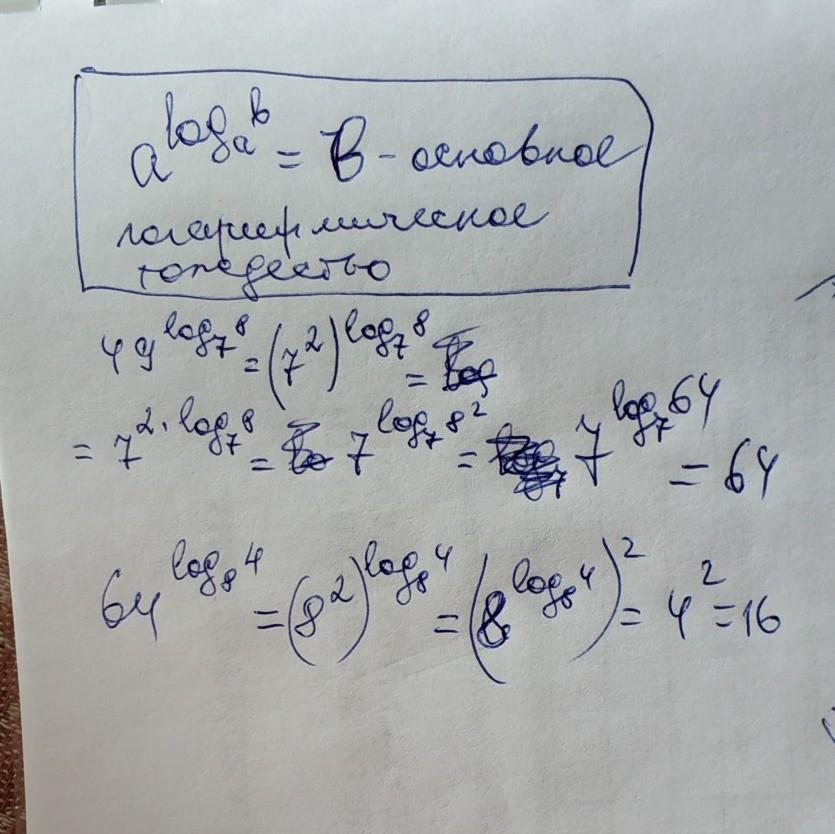 a^log_a b = b - основное
логарифмическое
тождество
49^log_7 8 = (7^2)^log_7 8 =
= 7^2·log_7 8 = 7^log_7 8^2 = 7^log_7 64 = 64
64^log_8 4 = (8^2)^log_8 4 = (8^log_8 4)^2 = 4^2 = 16